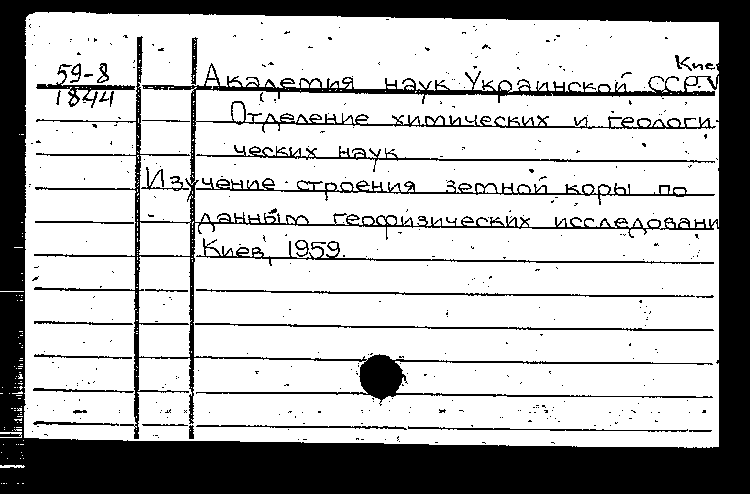 Киев
59-8
1844
Академия наук Украинской ССР.
Отделение химических и геологи-
ческих наук
Изучение строения земной коры по
данным геофизических исследовани
Киев, 1959.